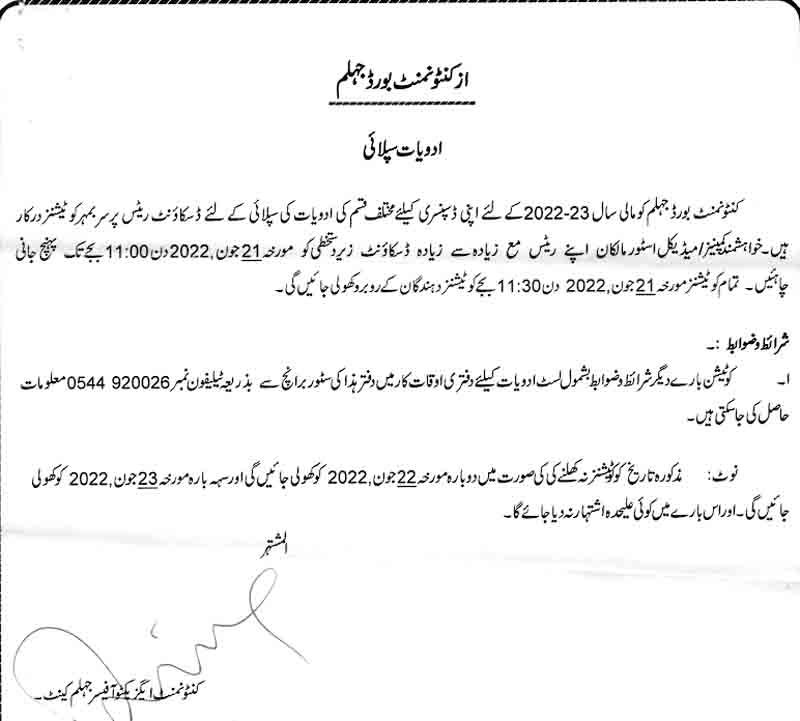 از کنٹونمنٹ بورڈ جہلم
ادویات سپلائی
کنٹونمنٹ بورڈ جہلم کو مالی سال 23-2022 کے لئے اپنی ڈسپنسری کیلئے مختلف قسم کی ادویات کی سپلائی کے لئے ڈسکاؤنٹ ریٹس پر سربمہر کوٹیشنز درکار
ہیں۔ خواہشمند کمپنیز/میڈیکل اسٹور مالکان اپنے ریٹس مع زیادہ سے زیادہ ڈسکاؤنٹ زیر دستخطی کو مورخہ 21 جون, 2022 دن 11:00 بجے تک پہنچ جانی
چاہئیں۔ تمام کوٹیشنز مورخہ 21 جون, 2022 دن 11:30 بجے کوٹیشنز دہندگان کے روبرو کھولی جائیں گی۔
شرائط و ضوابط :۔
ا۔ کوٹیشن بارے دیگر شرائط و ضوابط بشمول لسٹ ادویات کیلئے دفتری اوقات کار میں دفتر ہذا کی سٹور برانچ سے بذریعہ ٹیلیفون نمبر 920026 0544 معلومات
حاصل کی جاسکتی ہیں۔
نوٹ: مذکورہ تاریخ کو کوٹیشنز نہ کھلنے کی کی صورت میں دوبارہ مورخہ 22 جون, 2022 کو کھولی جائیں گی اور سہہ بارہ مورخہ 23 جون, 2022 کو کھولی
جائیں گی۔ اور اس بارے میں کوئی علیحدہ اشتہار نہ دیا جائے گا۔
المشتہر
کنٹونمنٹ ایگزیکٹو آفیسر جہلم کینٹ۔